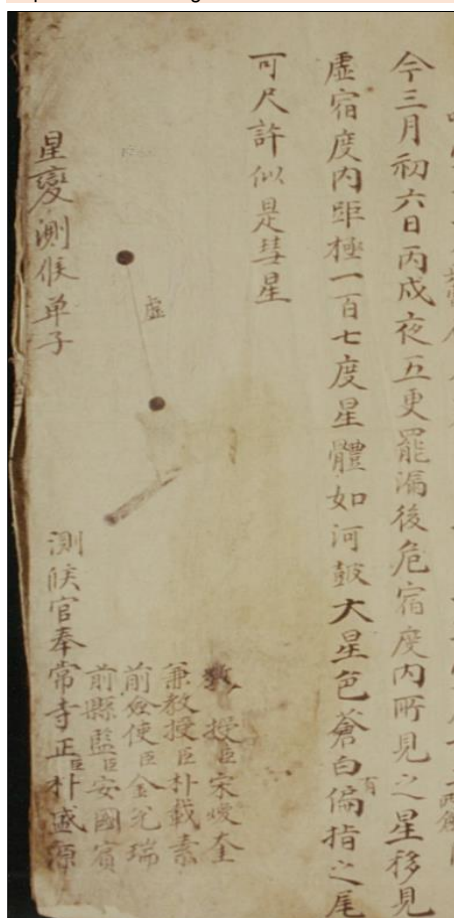 今三月初六日丙戌夜五更罷漏後危宿度内所見之星移見
虛宿度内距極一百七度星體如河鼓大星色蒼白有偏指之尾
可尺許似是彗星
虛
星變測候单子
教授臣宋㛇奎
兼教授臣朴載素
前僉使臣金兌瑞
前縣監臣安國賓
測候官奉常寺正臣朴盛源